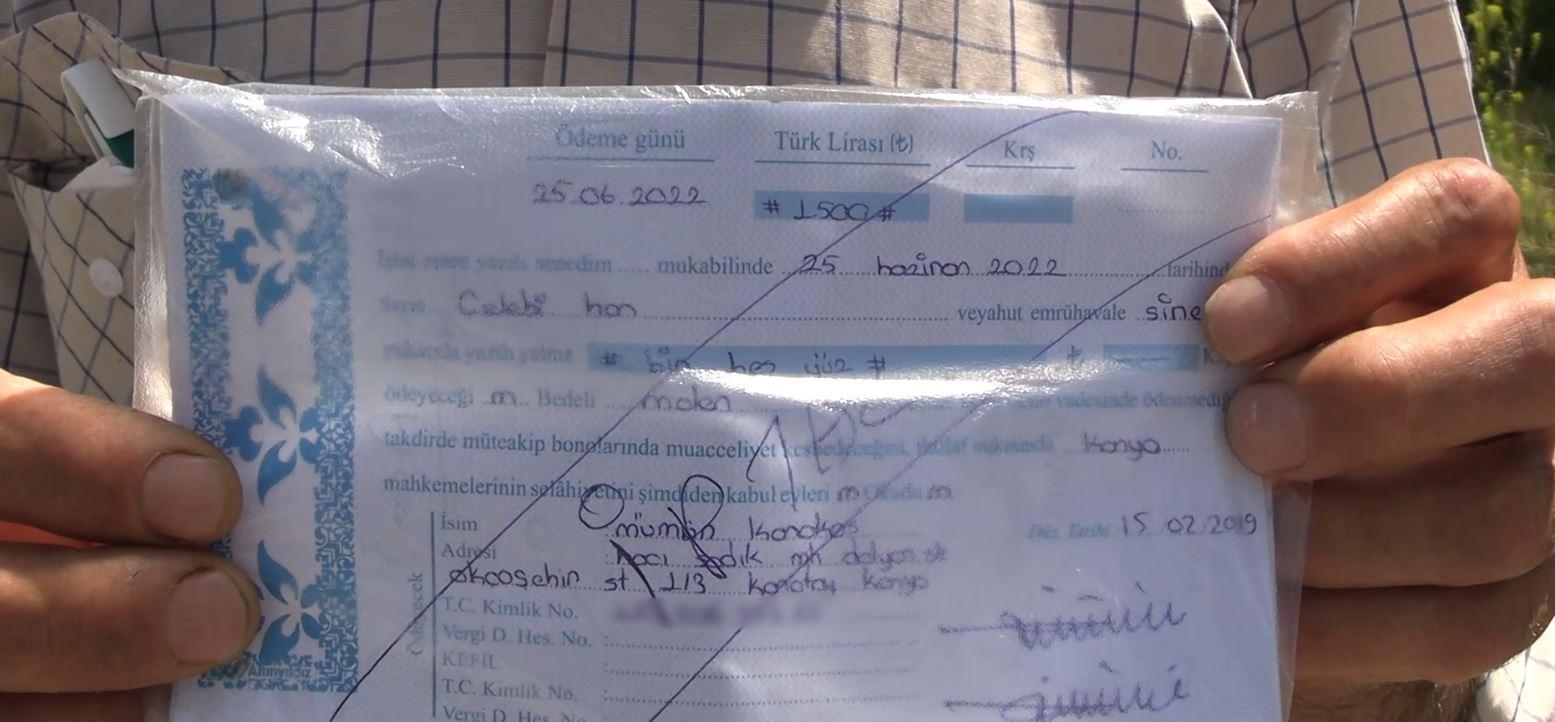 Ödeme günü Türk Lirası (₺) Krş No.
25.06.2022 # 1500 #
İşbu emre yazılı senedim ..... mukabilinde 25 haziran 2022 tarihind
Sayın Celebi han veyahut emrühavale sine
yukarıda yazılı yalnız # bin beş yüz # ₺ K
ödeyeceği m Bedeli malen vadesinde ödenmediği
takdirde müteakip bonolarında muacceliyet kesbedeceğini, ihtilaf vukuunda Konya
mahkemelerinin selâhiyetini şimdiden kabul eyleri m m
İsim mümün Karakaş
Düz. Tarihi 15.02.2019
Adresi hacı sadık mh dalyan sk
akcaşehin st 1/3 Karatay Konya
Ödeyecek
T.C. Kimlik No.
Vergi D. Hes. No. :
KEFİL
T.C. Kimlik No.
Vergi D. Hes. No.
Altınyıldız